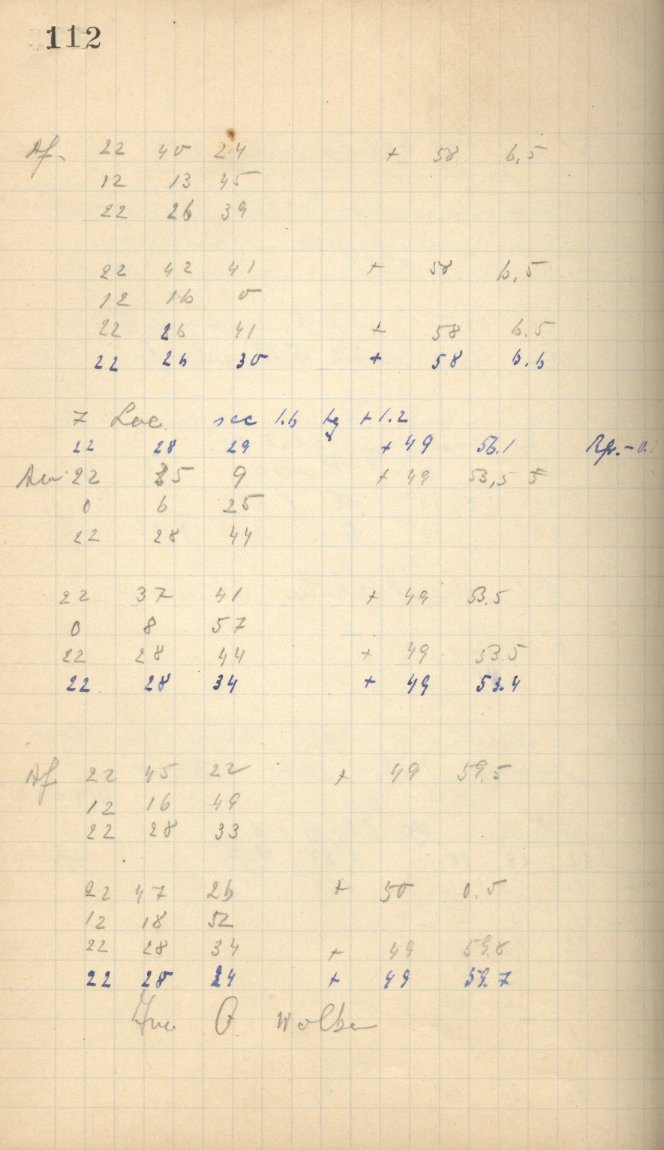 112
Af. 22 40 24 + 58 6,5
12 13 45
22 26 39
22 42 41 + 58 6,5
12 16 0
22 26 41 + 58 6.5
22 26 30 + 58 6.6
7 Lac. sec 1.6 tg +1.2
22 28 29 + 49 56.1 Rp. -0.
22 35 9 + 49 53,5
0 6 25
22 28 44
22 37 41 + 49 53.5
0 8 57
22 28 44 + 49 53.5
22 28 34 + 49 53.4
Af 22 45 22 + 49 59.5
12 16 49
22 28 33
22 47 26 + 50 0.5
12 18 52
22 28 34 + 49 59.8
22 28 24 + 49 59.7